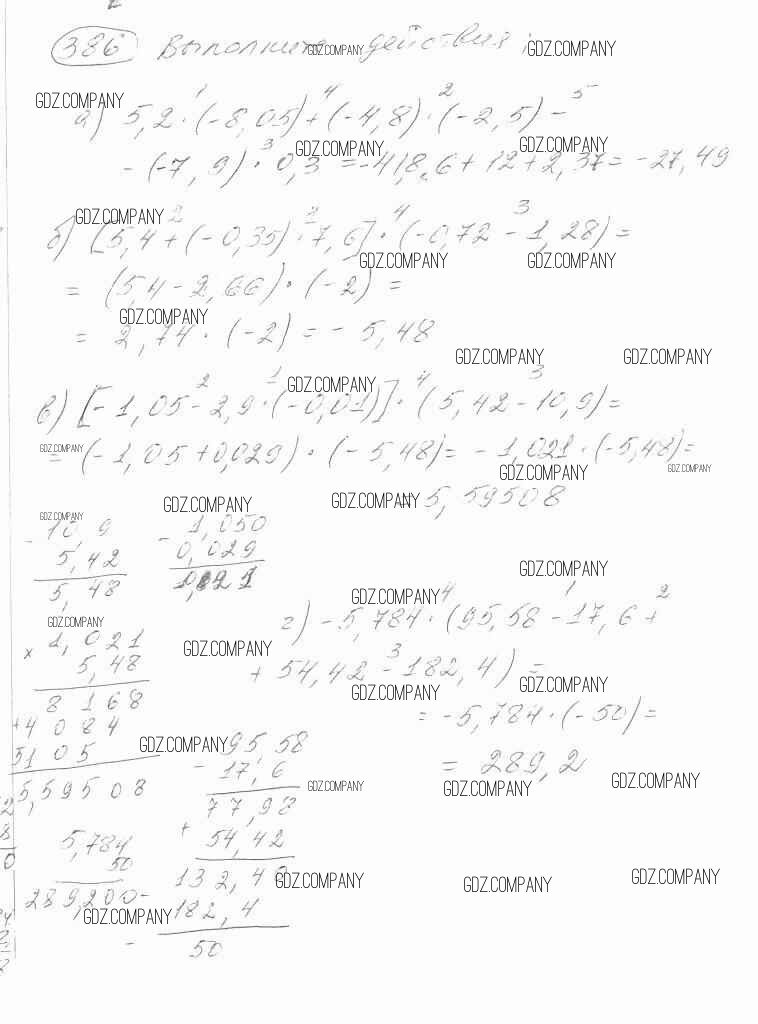 386 Выполните действия:
GDZ.COMPANY GDZ.COMPANY
GDZ.COMPANY
1 4 2 5
а) 5,2·(-8,05)+(-4,8)·(-2,5)-
GDZ.COMPANY GDZ.COMPANY
3
-(-7,9)·0,3 =-41,86+12+2,37=-27,49
GDZ.COMPANY
2 4 3
б) [5,4+(-0,35)·7,6]·(-0,72-1,28)=
GDZ.COMPANY GDZ.COMPANY
= (5,4-2,66)·(-2)=
GDZ.COMPANY
= 2,74·(-2)=-5,48
GDZ.COMPANY GDZ.COMPANY
GDZ.COMPANY
2 1 4 3
в) [-1,05-2,9·(-0,01)]·(5,42-10,9)=
GDZ.COMPANY
=(-1,05+0,029)·(-5,48)=-1,021·(-5,48)=
GDZ.COMPANY GDZ.COMPANY
GDZ.COMPANY GDZ.COMPANY
= 5,59508
GDZ.COMPANY
- 10,9
5,42
5,48
- 1,050
0,029
1,021
GDZ.COMPANY
GDZ.COMPANY
4 1 2
г) -5,784·(95,58-17,6+
GDZ.COMPANY GDZ.COMPANY
3
+ 54,42-182,4)=
GDZ.COMPANY GDZ.COMPANY
= -5,784·(-50)=
= 289,2
x 1,021
5,48
8168
+4084
5105
5,59508
GDZ.COMPANY
95,58
- 17,6
77,98
+ 54,42
132,40
- 182,4
- 50
GDZ.COMPANY GDZ.COMPANY GDZ.COMPANY
5,784
50
289,200
GDZ.COMPANY GDZ.COMPANY GDZ.COMPANY
GDZ.COMPANY